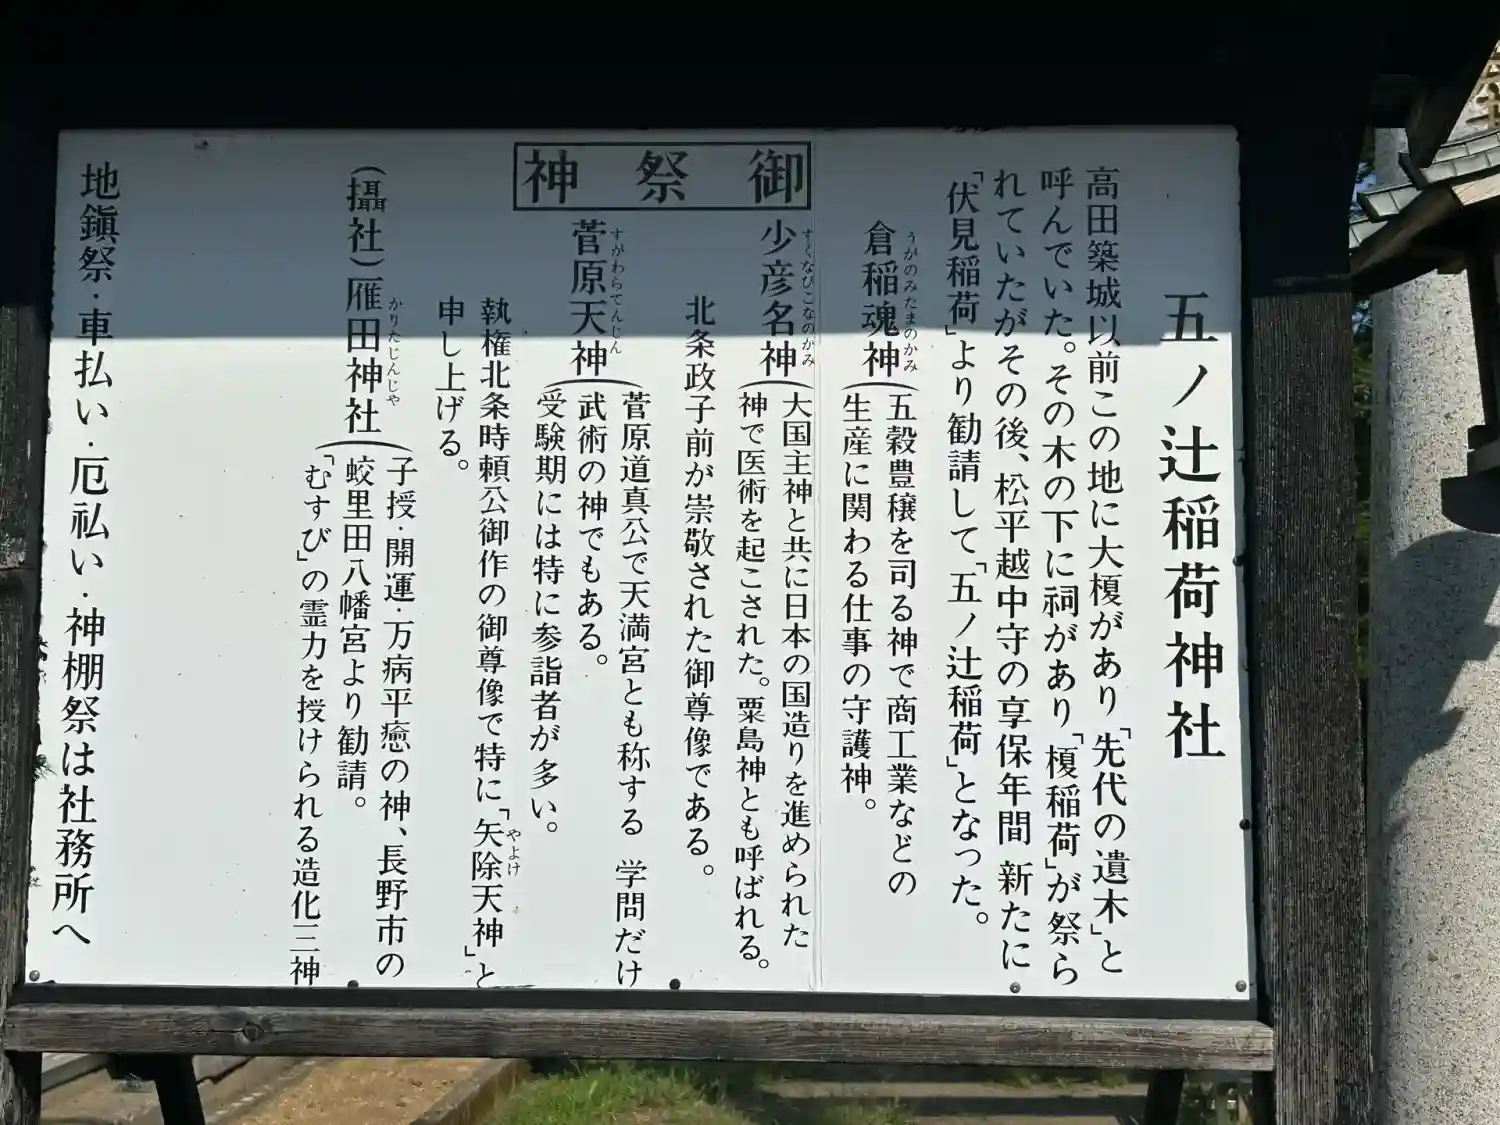 五ノ辻稲荷神社
高田築城以前この地に大榎があり「先代の遺木」と
呼んでいた。その木の下に祠があり「榎稲荷」が祭ら
れていたがその後、松平越中守の享保年間 新たに
「伏見稲荷」より勧請して「五ノ辻稲荷」となった。
御祭神
倉稲魂神
うがのみたまのかみ
五穀豊穣を司る神で商工業などの
生産に関わる仕事の守護神。
少彦名神
すくなひこなのかみ
大国主神と共に日本の国造りを進められた
神で医術を起こされた。粟島神とも呼ばれる。
北条政子前が崇敬された御尊像である。
菅原天神
すがわらてんじん
菅原道真公で天満宮とも称する 学問だけ
武術の神でもある。
受験期には特に参詣者が多い。
執権北条時頼公御作の御尊像で特に「矢除天神」と
やよけ
申し上げる。
(攝社)雁田神社
かりたじんじゃ
子授・開運・万病平癒の神、長野市の
蛟里田八幡宮より勧請。
「むすび」の霊力を授けられる造化三神
地鎭祭・車払い・厄払い・神棚祭は社務所へ